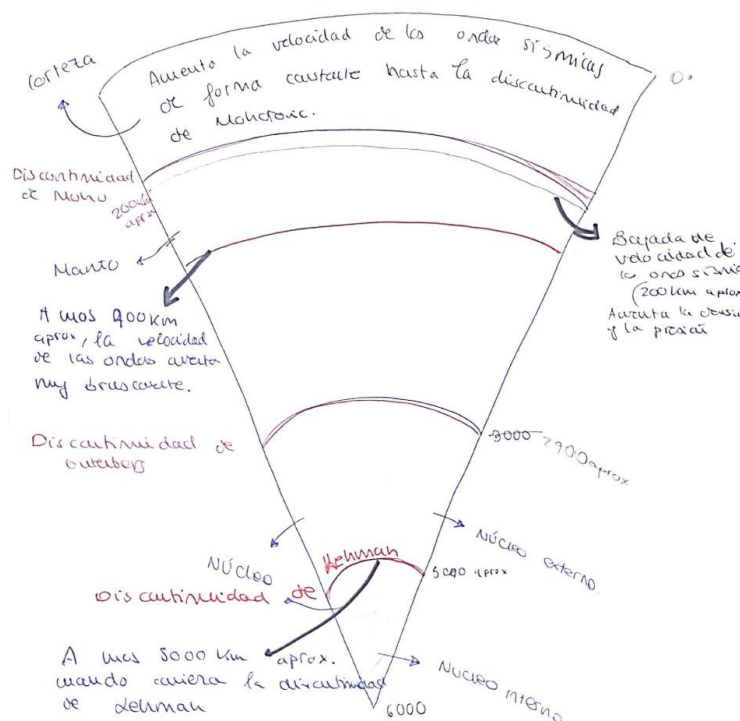 corteza
Aumenta la velocidad de las ondas sísmicas
de forma constante hasta la discontinuidad
de Mohorovic.
0.
Discontinuidad
de Moho
200km
aprox
Manto
Bajada de
velocidad de
la onda sísmi
(200km aprox
Aumenta la densi
y la presión
A unos 900km
aprox, la velocidad
de las ondas aumenta
muy bruscamente.
Discontinuidad de
Gutenberg
3000 2900 aprox
NÚCLEO
NÚCLEO externo.
Lehman
Discontinuidad de
5000 aprox
A unos 5000 km aprox.
cuando comienza la discontinuidad
de Lehman
NÚCLEO interno
6000